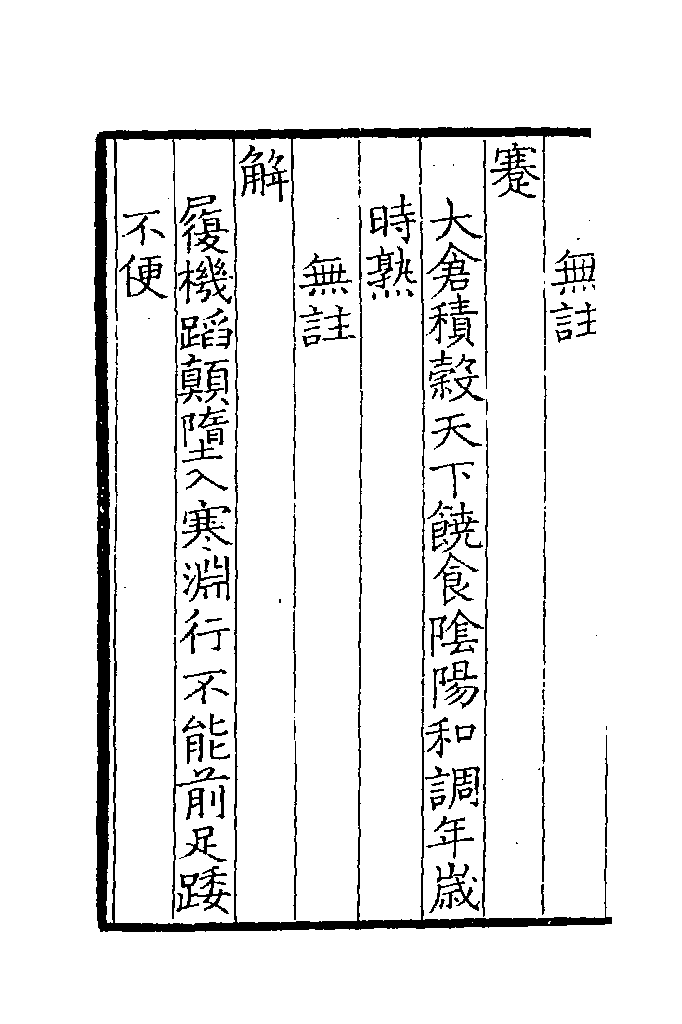 無註
蹇
大倉積穀天下饒食陰陽和調年歲
時熟
無註
解
履機蹈顛墮入寒淵行不能前足踒
不便